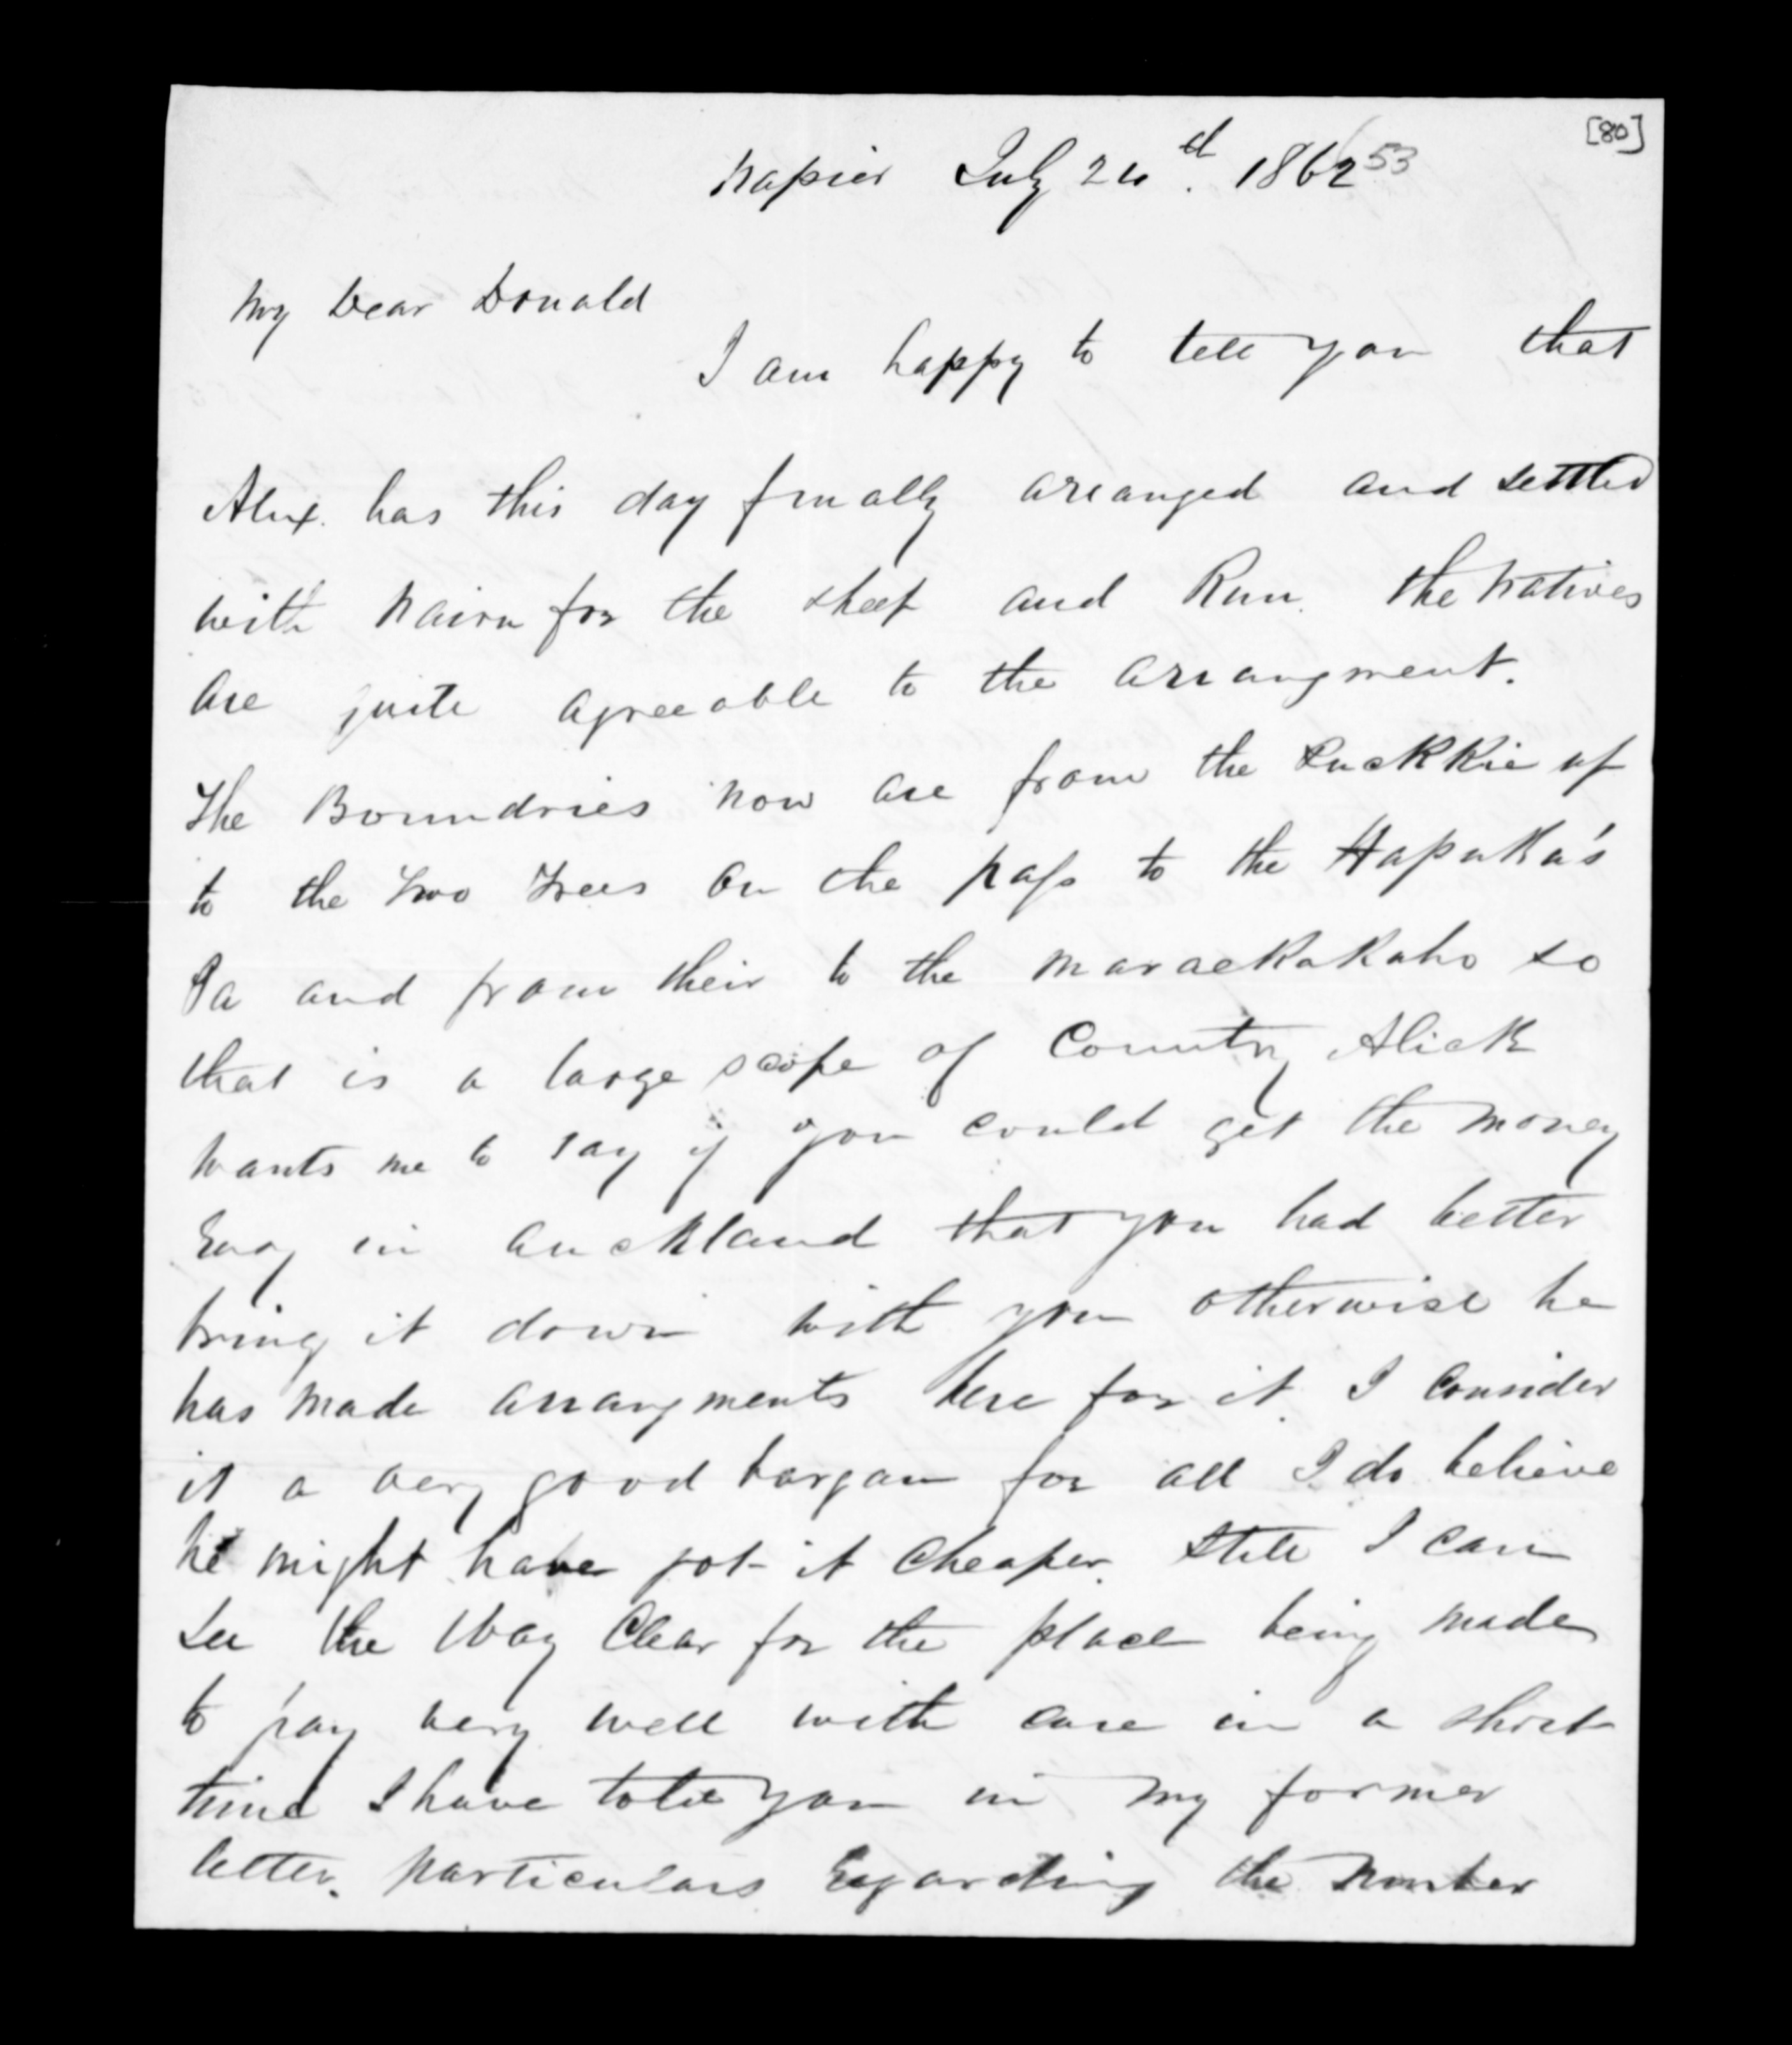 [80]
Napier July 24th. 1862 53
My Dear Donald
I am happy to tell you that
Alex. has this day finally arranged and settled
with Nairn for the sheep and Run. the Natives
are quite agreeable to the arrangment.
The Boundries now are from the up
to the Two Trees on the pass to the Hapuka's
Pa and from their to the Maraekakaho so
that is a large scope of Country Alick
wants me to say if you could get the money
Easy in Auckland that you had better
bring it down with you otherwise he
has made arrangments here for it. I Consider
it a very good bargan for all I do believe
he might have got it Cheaper. Still I can
See the Way Clear for the place being made
to pay very well with care in a short
time I have told you in my former
letter. particulars Regarding the Number